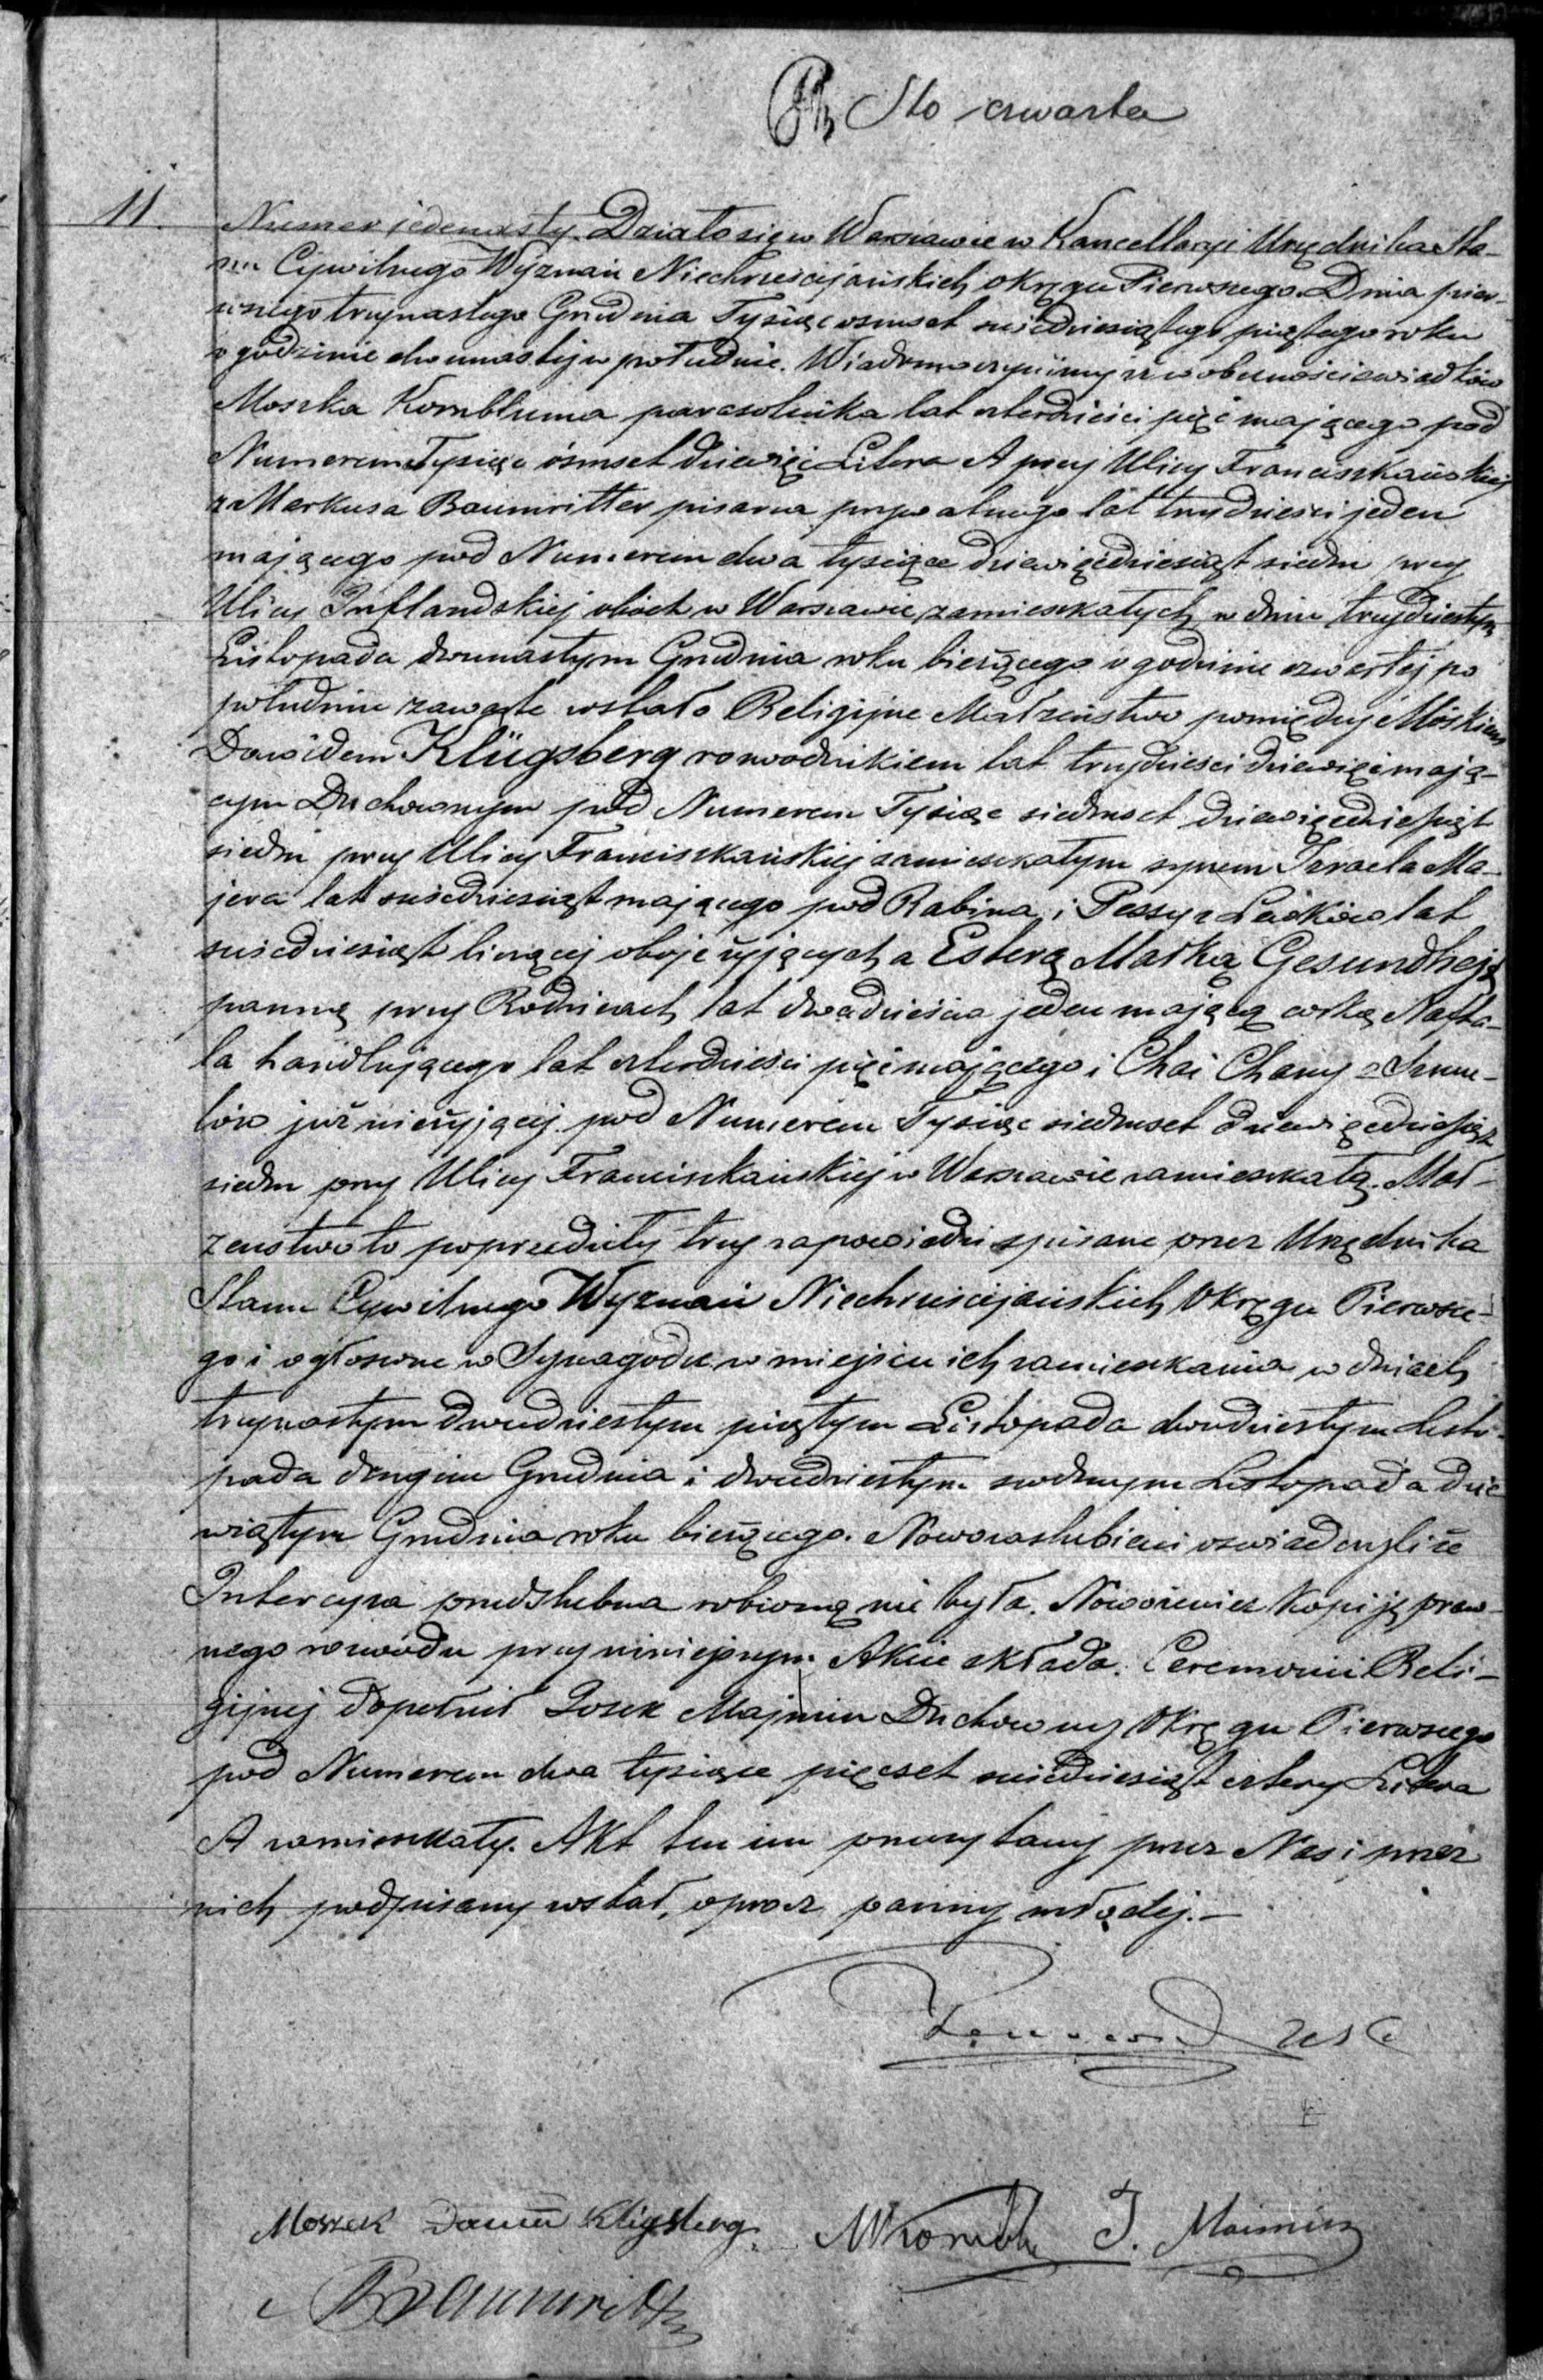 Sto czwarta
11. Numer jedenasty. Działo się w Warszawie w Kancellaryi Urzędnika Sta-
nu Cywilnego Wyznań Niechrześcijańskich okręgu Pierwszego. Dnia pier-
wszego trzynastego Grudnia Tysiąc osmset sześdziesiątego piątego roku
o godzinie dwunastej w południe. Wiadomo czynimy iż w obecności świadków
Moszka Kornbluma parasolnika lat czterdzieści pięć mającego pod
Numerem Tysiąc ośmset dziewięć Litera A przy Ulicy Franciszkańskiej
i Markusa Baumritter pisarza prywatnego lat trzydzieści jeden
mającego pod Numerem dwa tysiące dziewięćdziesiąt siedm przy
Ulicy Inflandskiej obóch w Warszawie zamieszkałych, w dniu trzydziestym
Listopada dwunastym Grudnia roku bieżącego o godzinie czwartej po
południu zawarte zostało Religijne Małżeństwo pomiędzy Moszkiem
Dawidem Klügsberg rozwodnikiem lat trzydzieści dziewięć mają-
cym Duchownym pod Numerem Tysiąc siedmset dziewięćdziesiąt
siedm przy Ulicy Franciszkańskiej zamieszkałym synem Izraela Ma-
jera lat sześdziesiąt mającego pod Rabina i Pessy z Leśków lat
sześdziesiąt liczącej oboje żyjących a Esterą Małką Gesundhejt
panną przy Rodzicach lat dwadzieścia jeden mającą córką Nafta-
la handlującego lat czterdzieści pięć mającego i Chai Chany z Szmu-
lów już nieżyjącej pod Numerem Tysiąc siedmset dziewięćdziesiąt
siedm przy Ulicy Franciszkańskiej w Warszawie zamieszkałą. Mał-
żeństwo to poprzedziły trzy zapowiedzi spisane przez Urzędnika
Stanu Cywilnego Wyznań Niechrześcijańskich Okręgu Pierwsze-
go i ogłoszone w Synagodze w miejscu ich zamieszkania w dniach
trzynastym dwudziestym piątym Listopada dwudziestym Listo-
pada drugim Grudnia i dwudziestym siódmym Listopada dzie-
wiątym Grudnia roku bieżącego. Nowozaślubieni oświadczyli że
Intercyza przedślubna robioną nie była. Nowożeniec Kopiję praw-
nego rozwodu przy niniejszym Akcie składa. Ceremonii Reli-
gijnej dopełnił Josek Majmin Duchowny Okręgu Pierwszego
pod Numerem dwa tysiące pięcset sześdziesiąt cztery Litera
A zamieszkały. Akt ten im przeczytany przez Nas i przez
nich podpisany został, oprócz panny młodej.—
Moszek Dawid Kligsberg. MKornbl J. Maimin
Baumritter